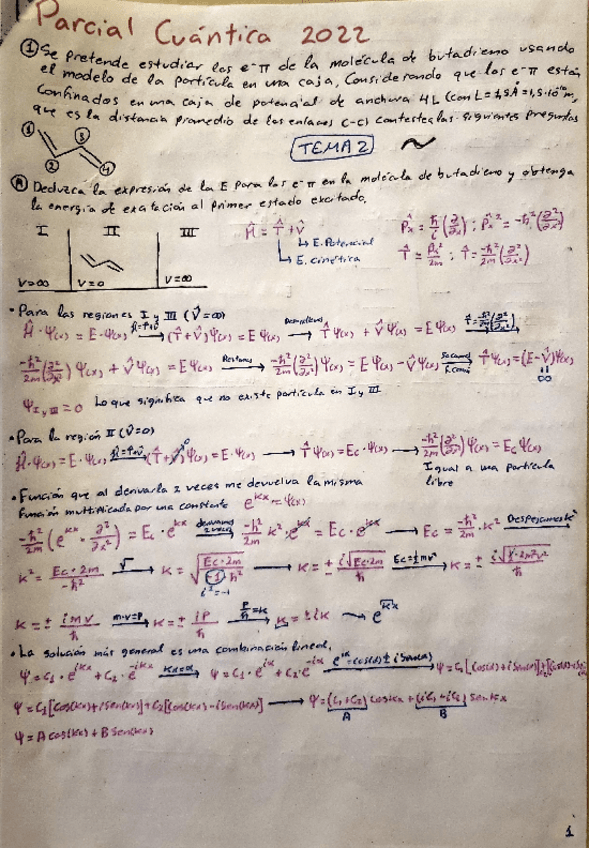 Parcial Cuántica 2022
① Se pretende estudiar los e⁻π de la molécula de butadieno usando
el modelo de la partícula en una caja. Considerando que los e⁻π están
confinados en una caja de potencial de anchura 4L (con L=1,5Å=1,5·10⁻¹⁰m,
que es la distancia promedio de los enlaces C-C) contesta las siguientes preguntas
① ② ③ ④
TEMA 2
Ⓐ Deduzca la expresión de la E para los e⁻π en la molécula de butadieno y obtenga
la energía de excitación al primer estado excitado.
I II III
V=∞ V=0 V=∞
Ĥ = T̂ + V̂
↳ E. Potencial
↳ E. cinética
P̂x = ħ/i (∂/∂x) ; P̂x² = -ħ² (∂²/∂x²)
T̂ = P̂x²/2m ; T̂ = -ħ²/2m (∂²/∂x²)
• Para las regiones I y III (V̂=∞)
Ĥ·Ψ(x) = E·Ψ(x) —Ĥ=T̂+V̂→ (T̂+V̂)Ψ(x) = EΨ(x) → T̂Ψ(x) + V̂Ψ(x) = EΨ(x) —T̂=-ħ²/2m(∂²/∂x²)→
-ħ²/2m (∂²/∂x²) Ψ(x) + V̂Ψ(x) = EΨ(x) —Restamos→ -ħ²/2m (∂²/∂x²) Ψ(x) = EΨ(x) - V̂Ψ(x) —Sacamos f. común→ T̂Ψ(x) = (E-V̂)Ψ(x)
∞
Ψ I y III = 0 Lo que significa que no existe partícula en I y III
• Para la región II (V̂=0)
Ĥ·Ψ(x) = E·Ψ(x) —Ĥ=T̂+V̂→ (T̂+V̂)⁰Ψ(x) = E·Ψ(x) → T̂Ψ(x) = Ec·Ψ(x) → -ħ²/2m (∂²/∂x²) Ψ(x) = EcΨ(x)
Igual a una partícula
libre
• Función que al derivarla 2 veces me devuelva la misma
función multiplicada por una constante e^{kx} = Ψ(x)
-ħ²/2m (e^{kx} · ∂²/∂x²) = Ec·e^{kx} —derivamos 2 veces→ -ħ²/2m k²·e^{kx} = Ec·e^{kx} → Ec = -ħ²/2m · k² —Despejamos k→
k² = Ec·2m/-ħ² —√→ k = √(Ec·2m/-1·ħ²) → k = ± i√(Ec·2m)/ħ —Ec=½mv²→ k = ± i√(½·2m²v²)/ħ
i²=-1
k = ± imv/ħ —m·v=P→ k = ± iP/ħ —P/ħ=k→ k = ± ik → e^{kx}
• La solución más general es una combinación lineal,
Ψ = C₁·e^{ikx} + C₂·e^{-ikx} —kx=α→ Ψ = C₁·e^{iα} + C₂·e^{-iα} —e^{iα}=cos(α)±iSen(α)→ Ψ = C₁[Cos(α)+iSen(α)]+C₂[Cos(α)-iSen
Ψ = C₁[Cos(kx)+iSen(kx)]+C₂[Cos(kx)-iSen(kx)] → Ψ = (C₁+C₂)coskx + (iC₁+iC₂)Senkx
A B
Ψ = A cos(kx) + B Sen(kx)
1